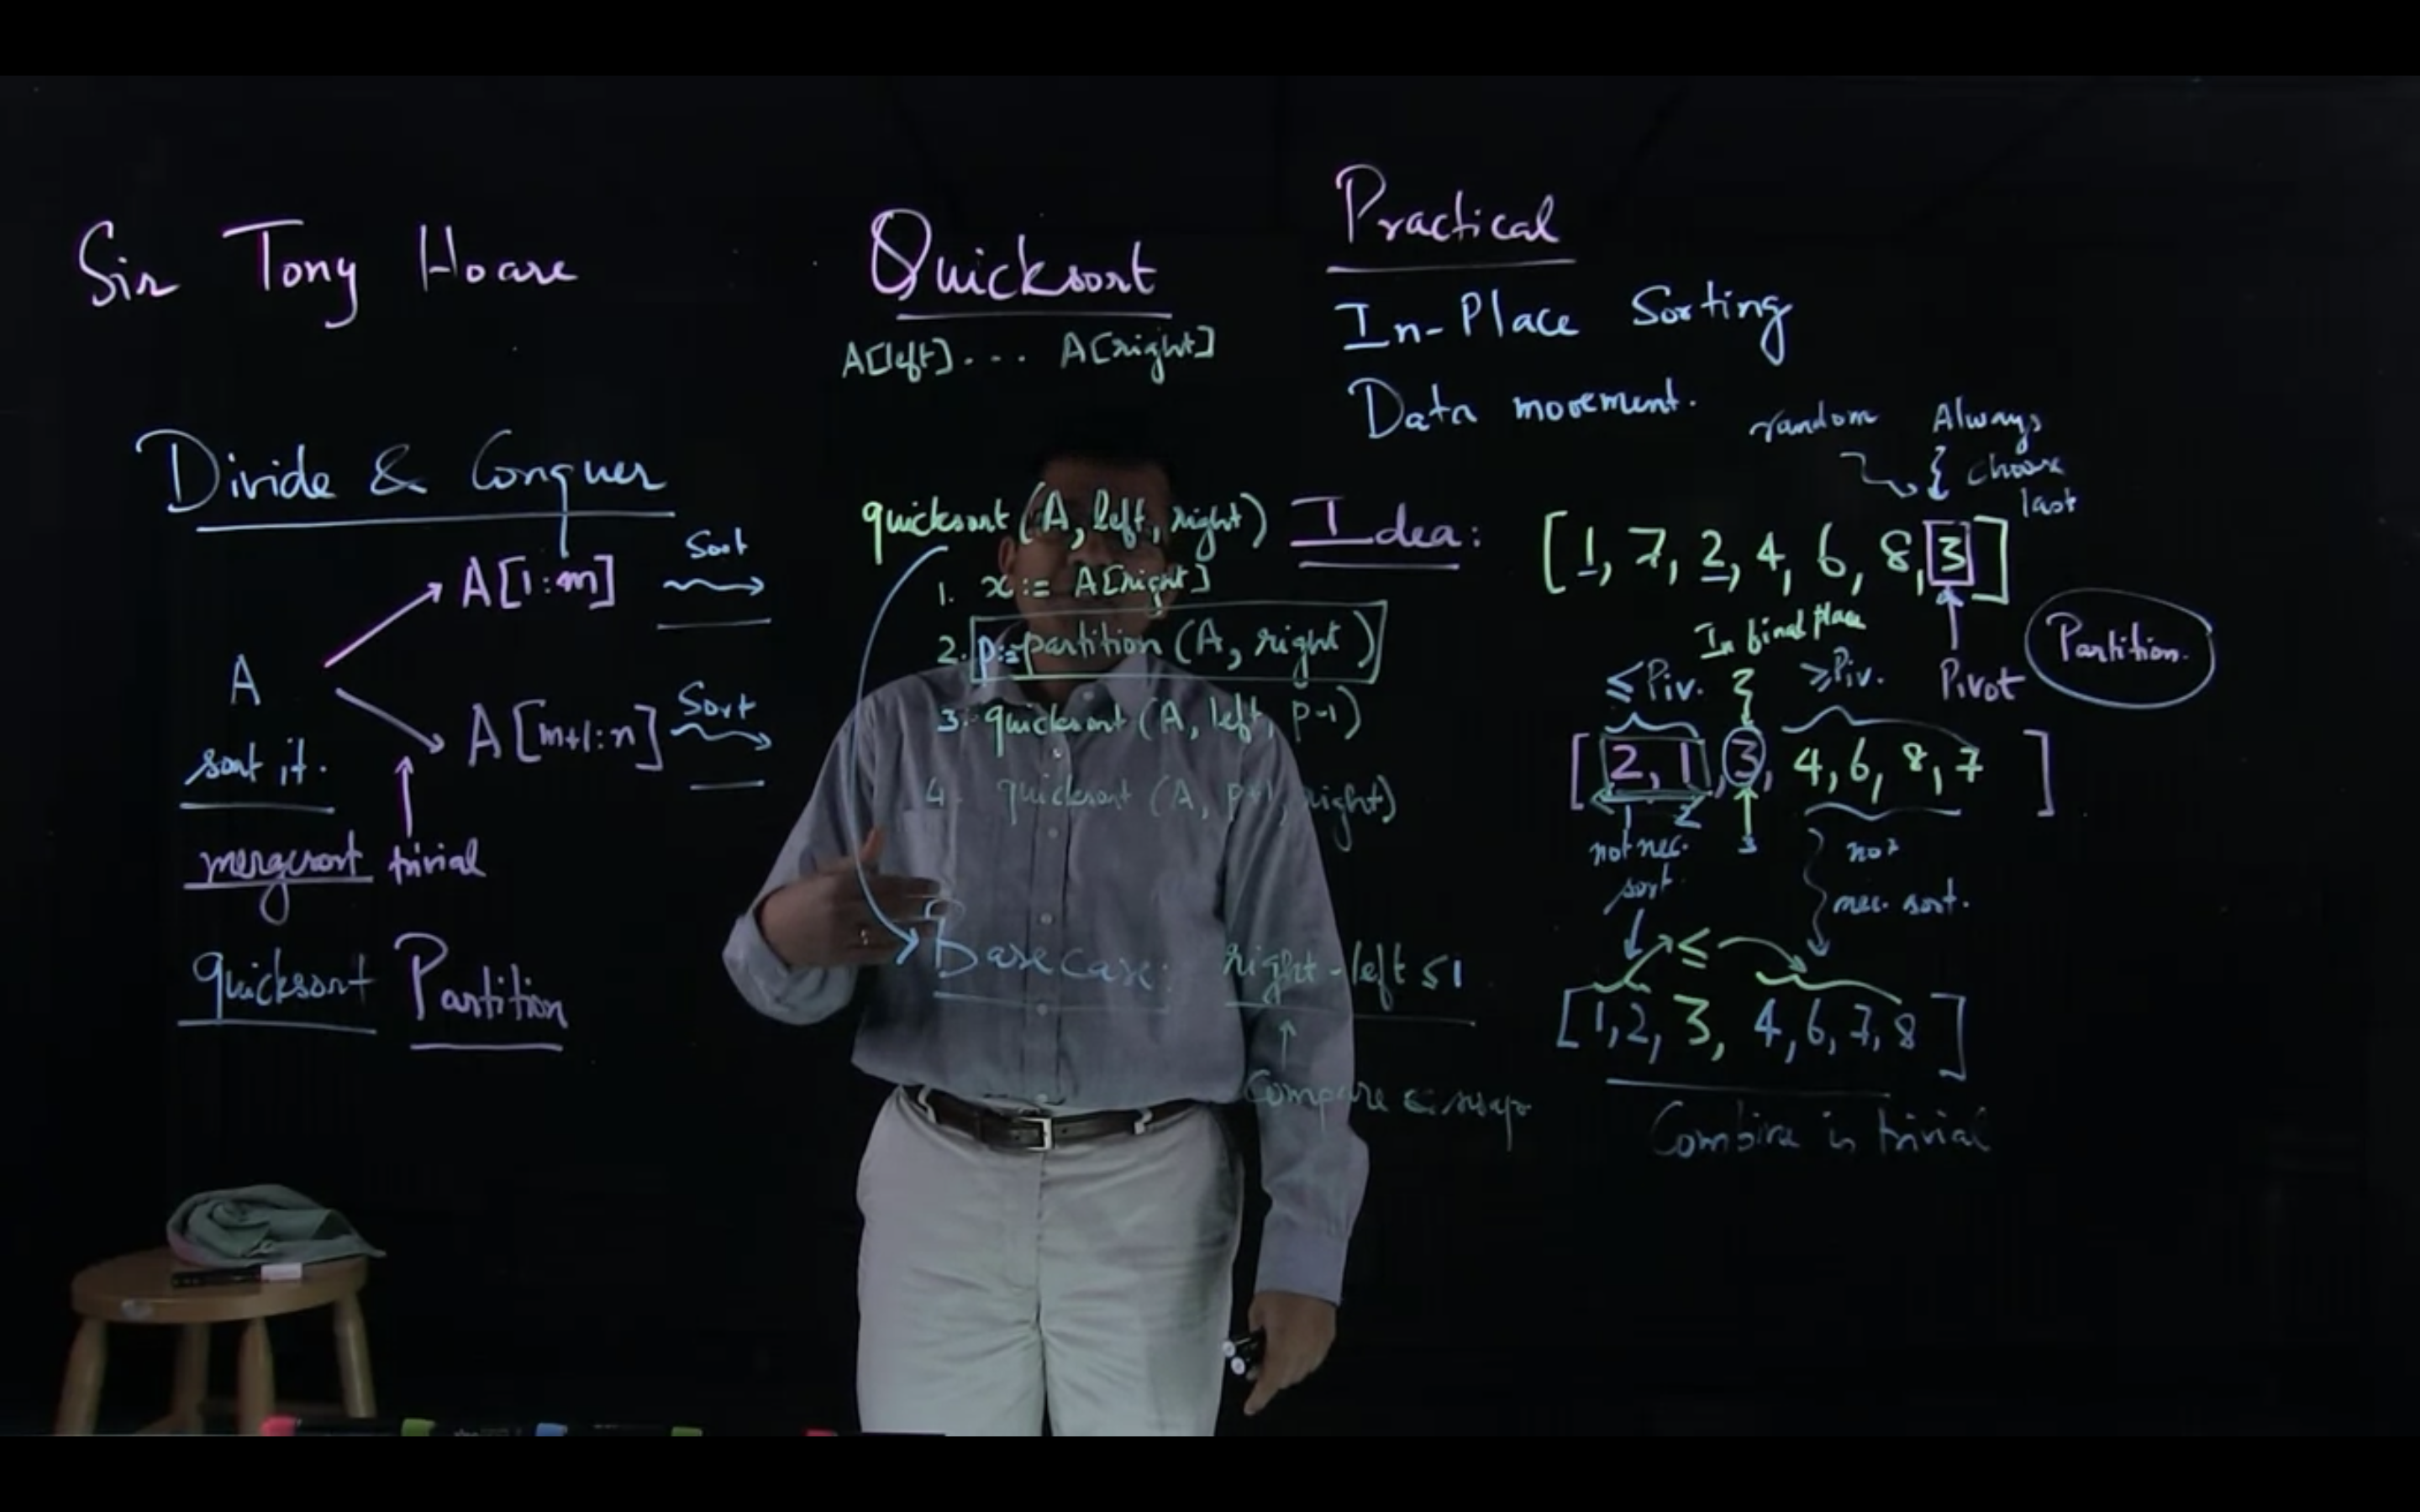 Sir Tony Hoare
Divide & Conquer
A[1:m]
Sort
A
sort it.
A[m+1:n]
Sort
mergesort
trivial
quicksort
Partition
Quicksort
A[left]... A[right]
quicksort (A, left, right)
1. x := A[right]
2. p:=partition (A, right)
3. quicksort (A, left, p-1)
4. quicksort (A, p+1, right)
Base case: right-left ≤1
Compare & swap
Practical
In-Place Sorting
Data movement.
random
Always
choose
last
Idea:
[1, 7, 2, 4, 6, 8, 3]
In final place
≤Piv.
≥Piv.
Pivot
Partition.
[2, 1, 3, 4, 6, 8, 7 ]
1 2
3
not nec.
sort.
not
nec. sort.
≤
[1, 2, 3, 4, 6, 7, 8]
Combine is trivial